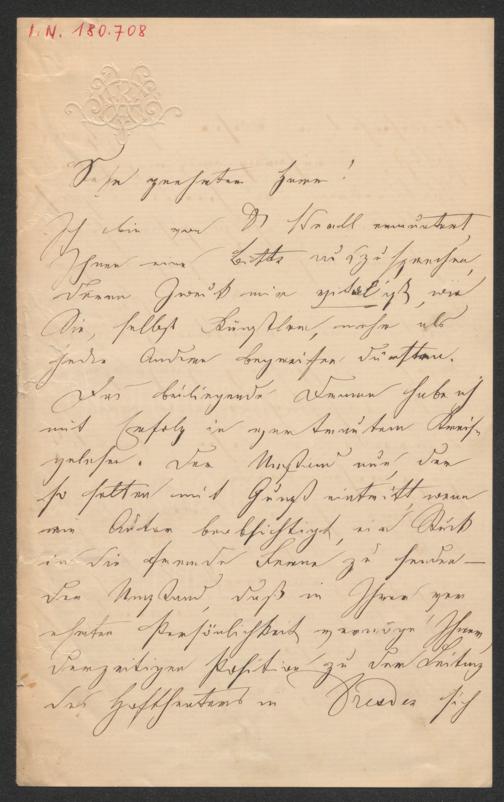 I. N. 180.708
Sehr geehrter Herr!
Ich bin von Dr ermuntert,
Ihnen eine Bitte auszusprechen,
deren Zweck mir heilig ist, wie
Sie, selbst Künstler, mehr als
jeder Andere begreifen dürften.
Das beiliegende Drama habe ich
mit Erfolg in vertrautem Kreise
gelesen. Der Umstand nur, der
so selten mit Gunst eintritt, wenn
ein Autor beabsichtigt, ein Stück
in die fremde Ferne zu senden –
der Umstand, daß in Ihrer ver
ehrten Persönlichkeit vermöge Ihrer
derzeitigen Position zu der Leitung
des Hoftheaters in Dresden sich